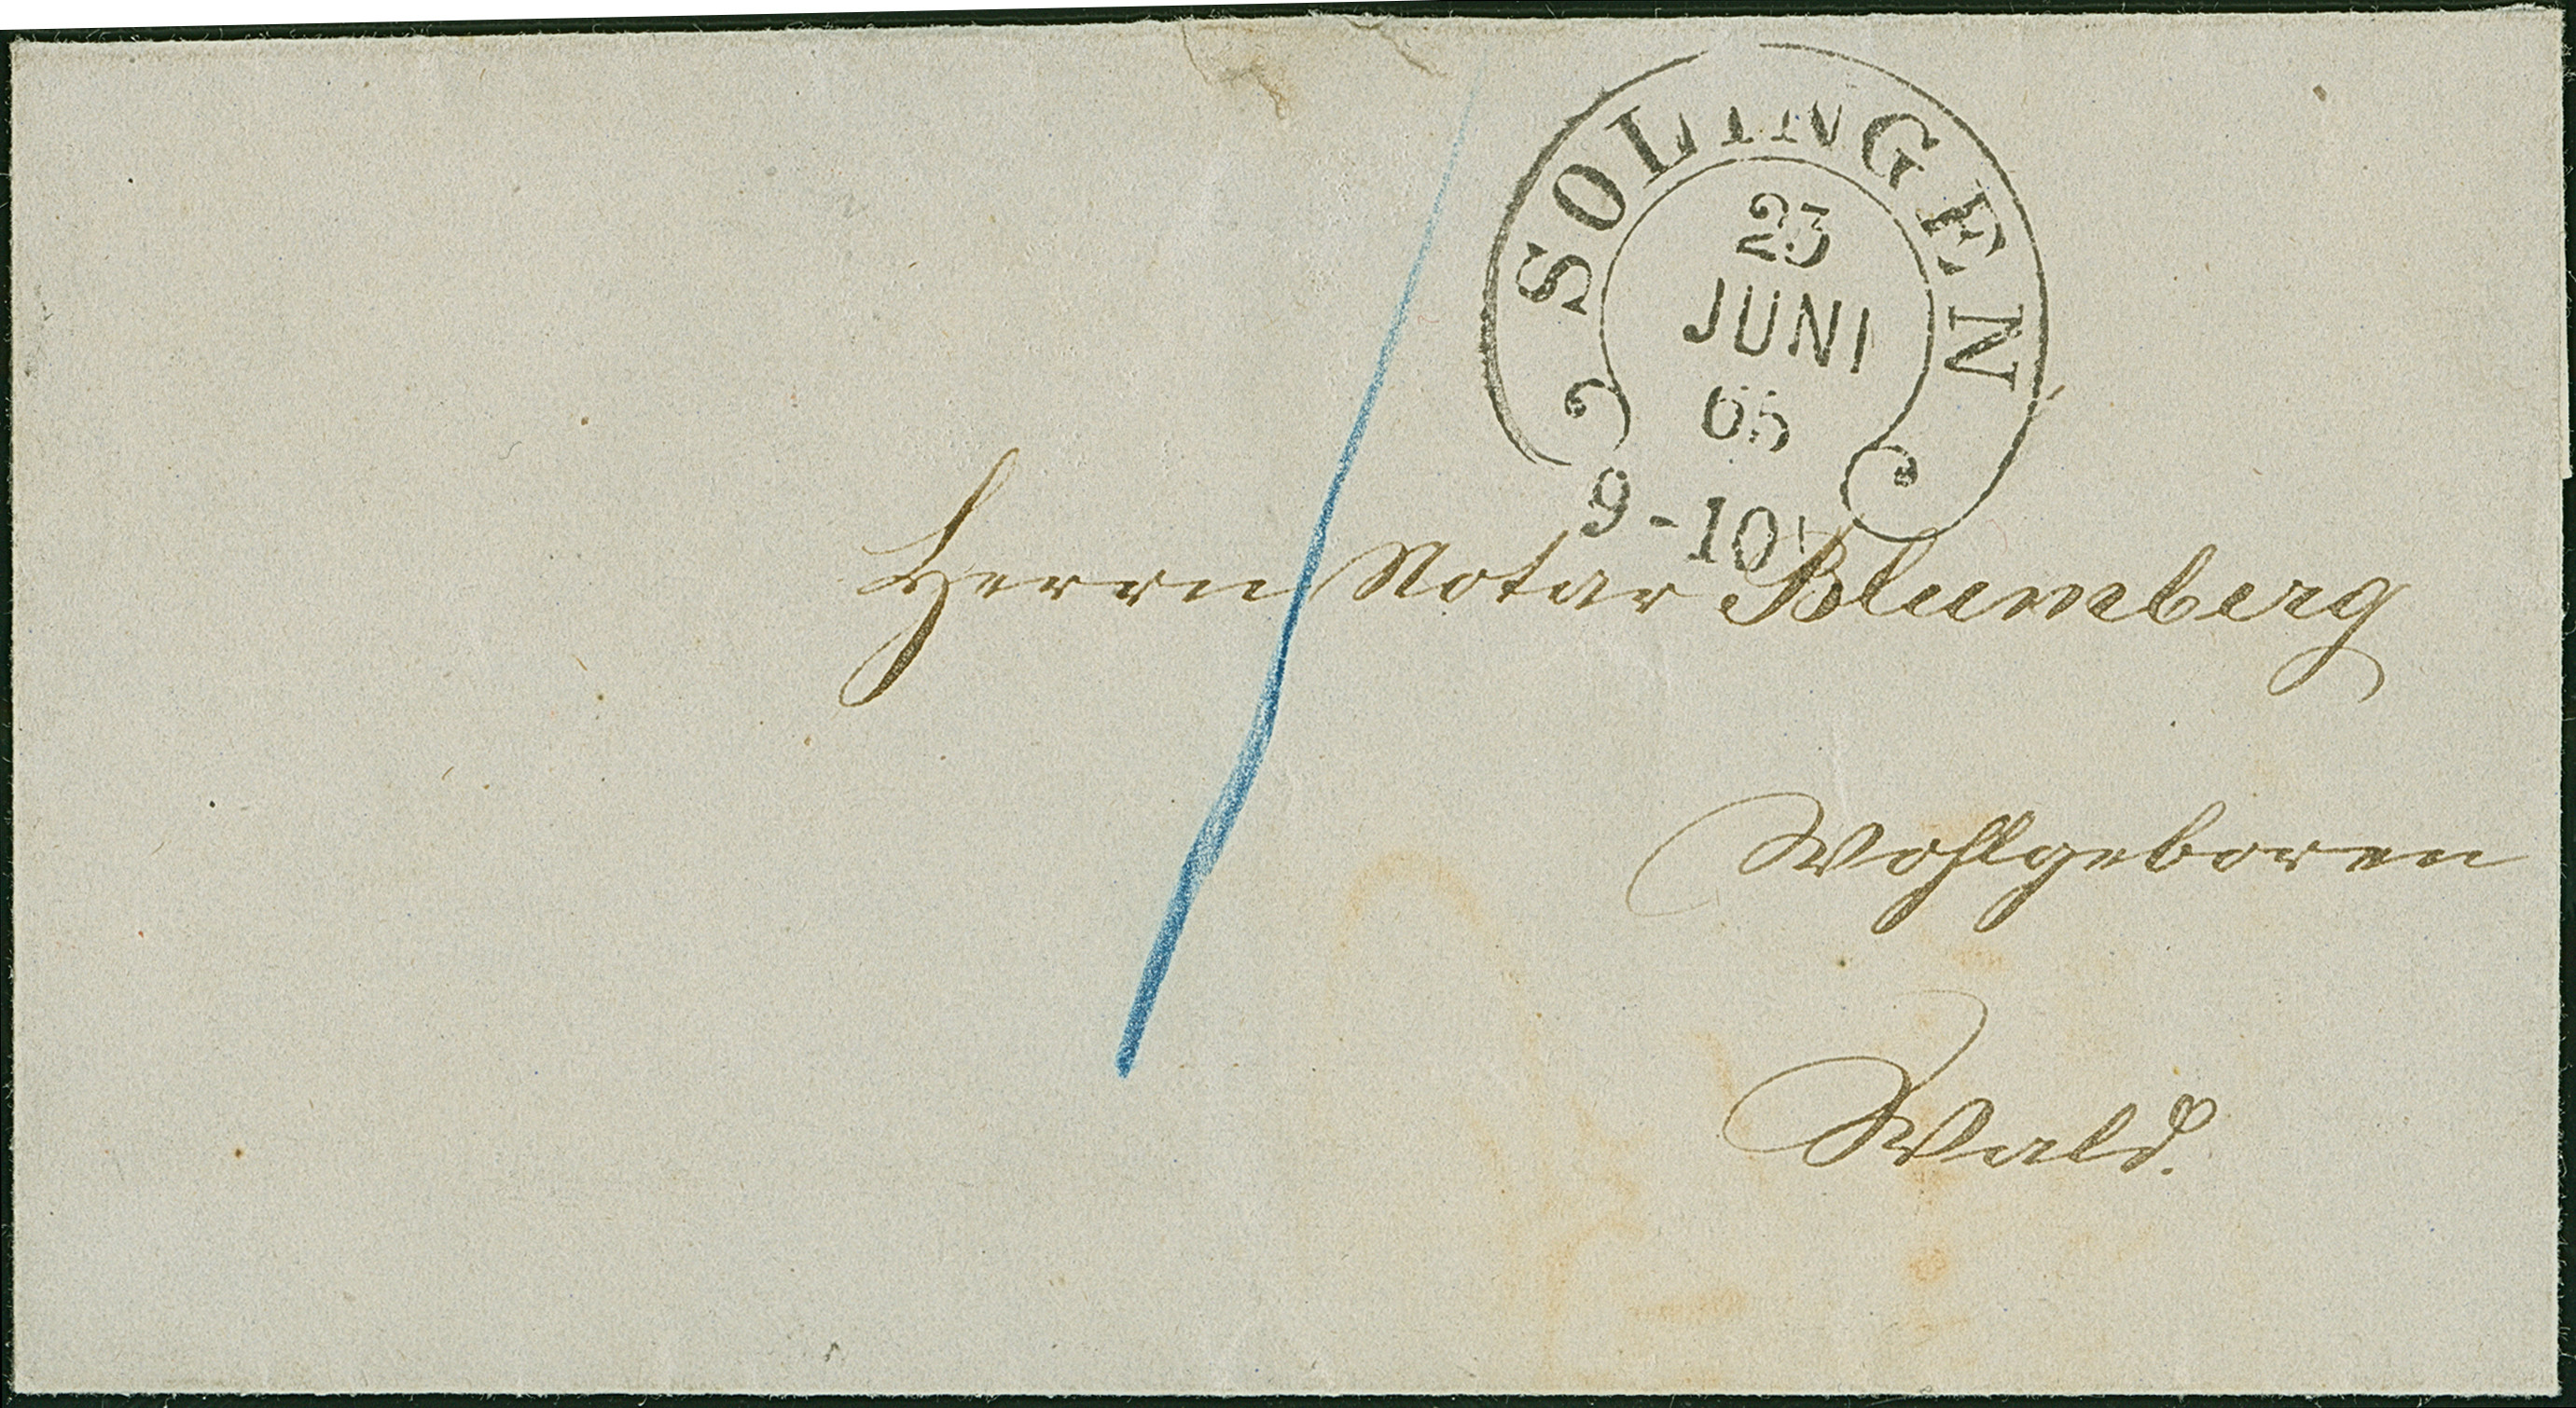 SOLINGEN
23
JUNI
65
9-10
Herrn Notar Blumberg
Wohlgeboren
Wald.